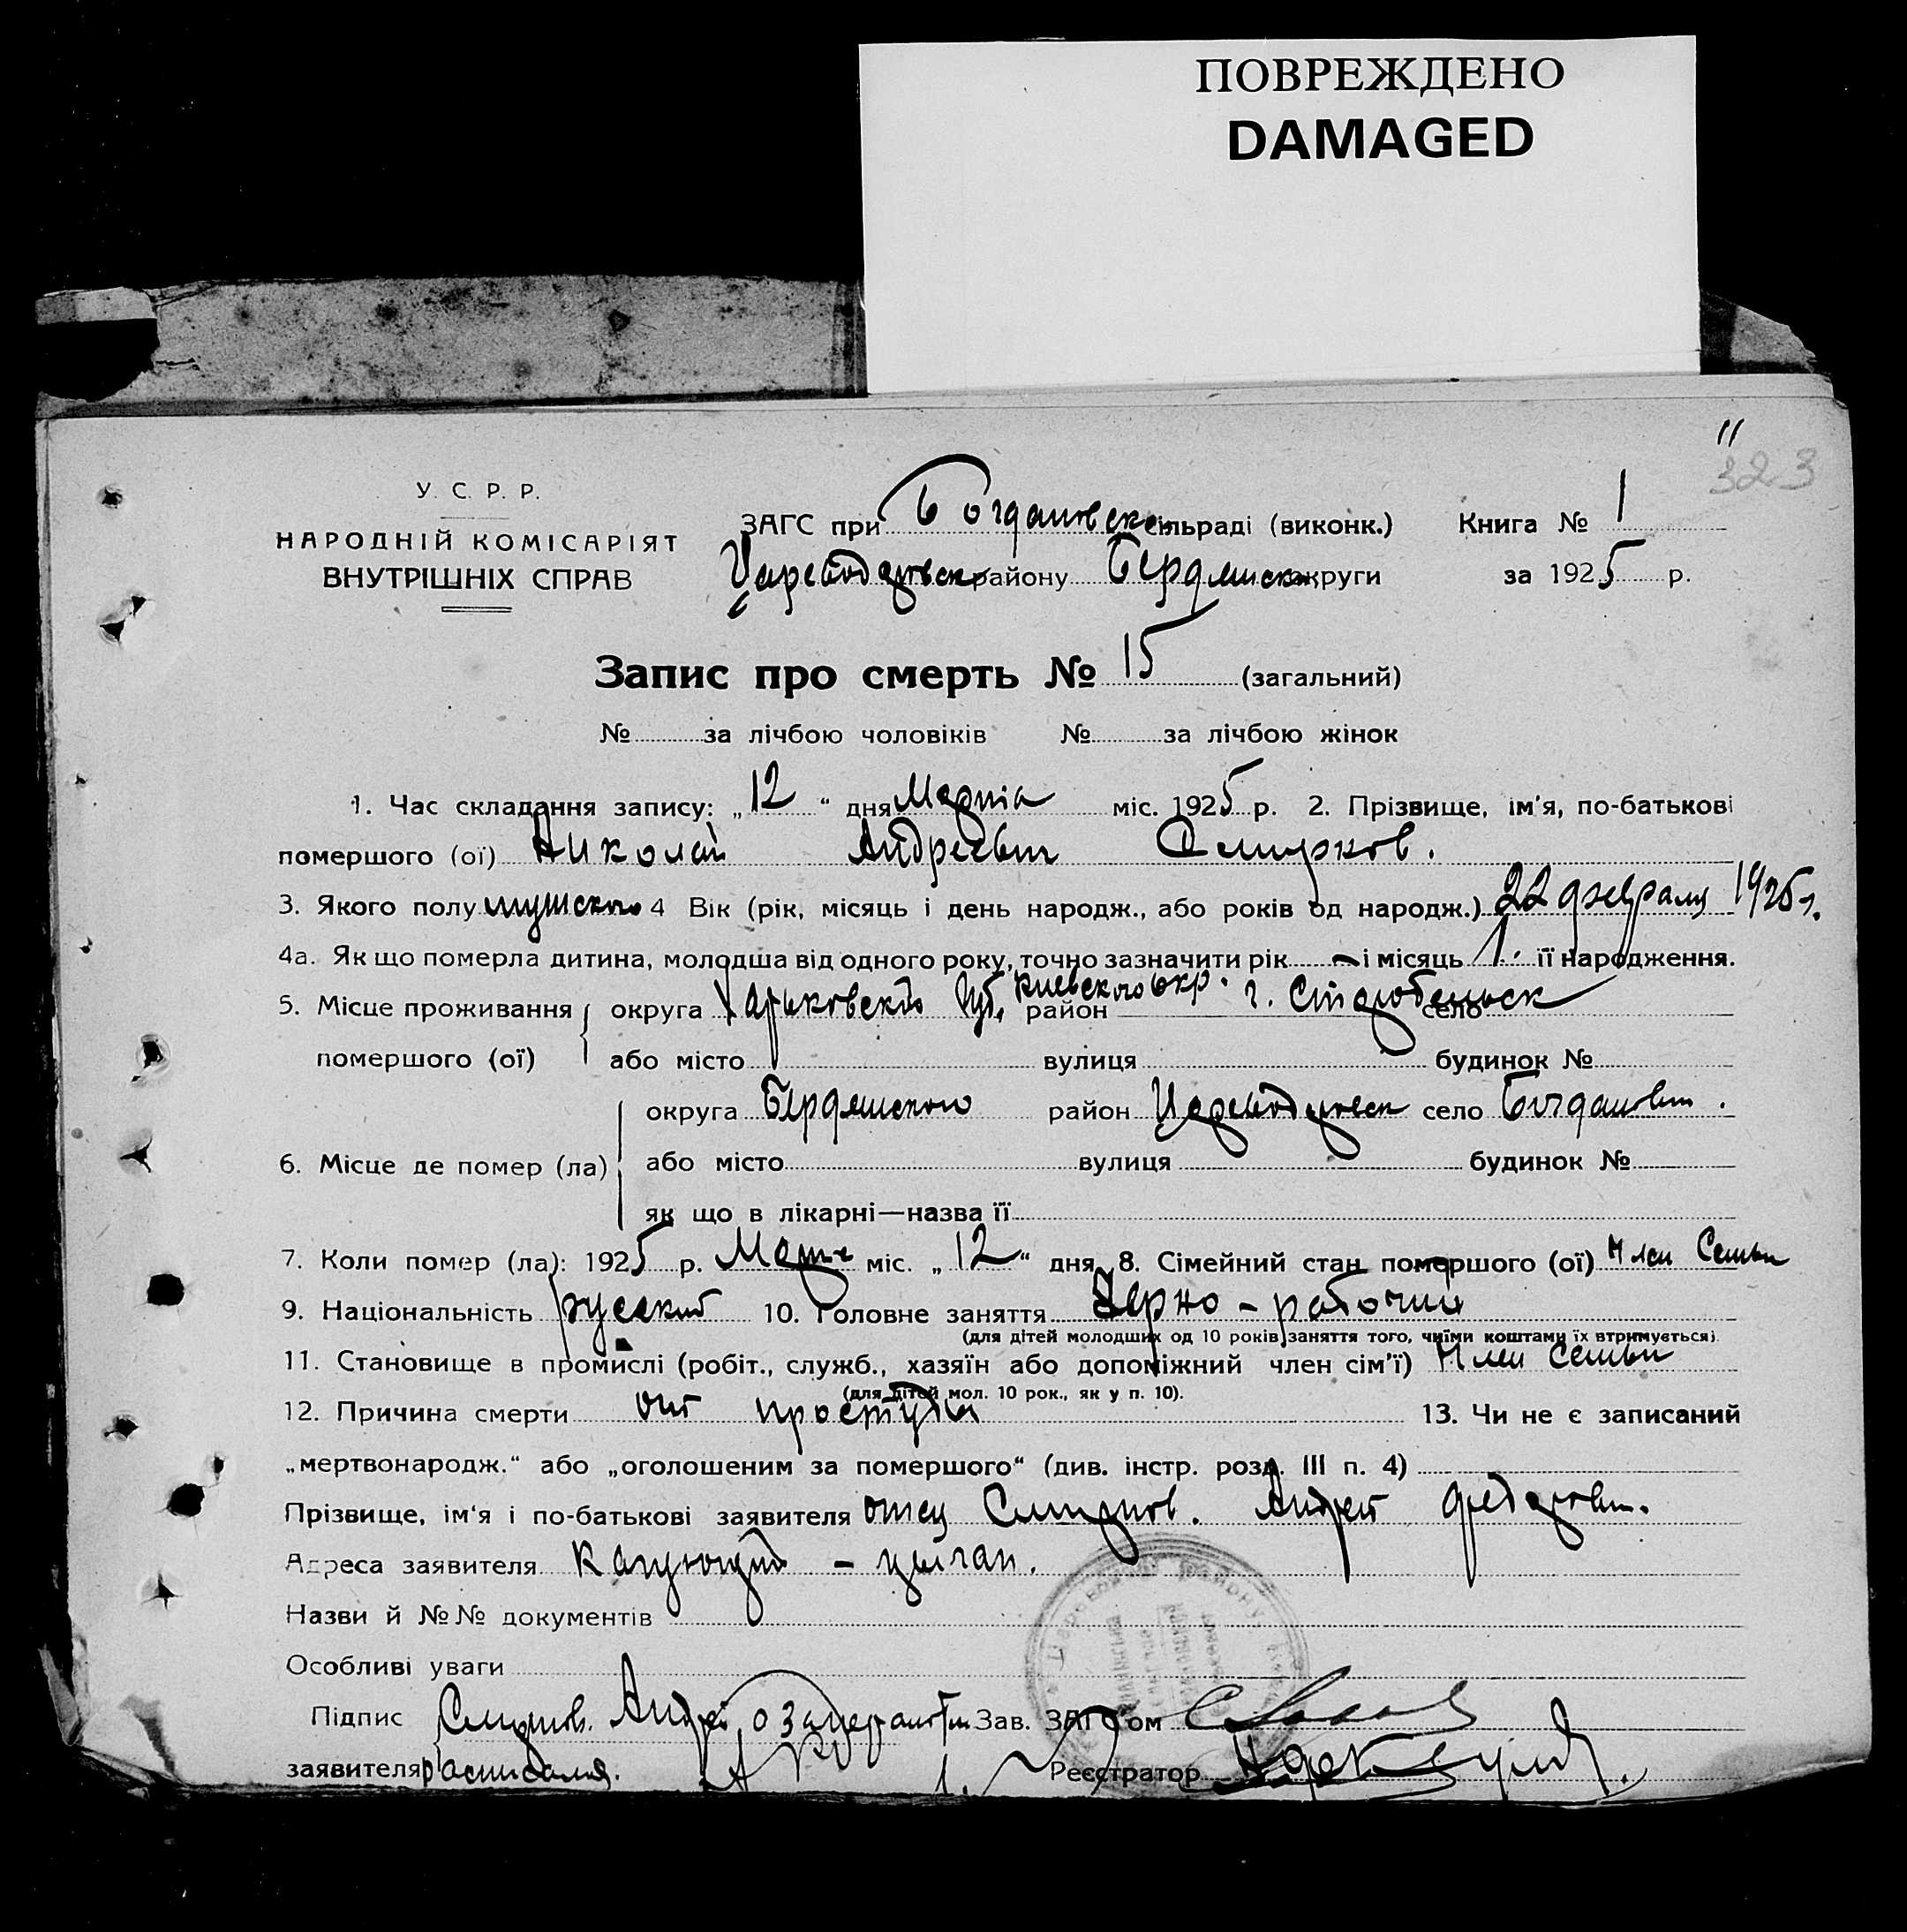 ПОВРЕЖДЕНО
DAMAGED
11
323
У. С. Р. Р.
НАРОДНІЙ КОМІСАРІЯТ
ВНУТРІШНІХ СПРАВ
ЗАГС при Богдановск. сільраді (виконк.) Книга № 1
району Бердянск. округи за 1925 р.
Запис про смерть № 15 (загальний)
№ за лічбою чоловіків № за лічбою жінок
1. Час складання запису: „12“ дня Марта міс. 1925 р. 2. Прізвище, ім'я, по-батькові
помершого (ої) Николай Андреевич
3. Якого полу мужского 4 Вік (рік, місяць і день народж., або років од народж.) 22 февраля 1925 г.
4а. Як що померла дитина, молодша від одного року, точно зазначити рік — і місяць 1. її народження.
5. Місце проживання округа Харьковской губ. район г. Старобельск село
помершого (ої) або місто вулиця будинок №
округа Бердянского район село Богдановки.
6. Місце де помер (ла) або місто вулиця будинок №
як що в лікарні—назва її
7. Коли помер (ла): 1925 р. Марта міс. „12“ дня 8. Сімейний стан помершого (ої) Член Семьи
9. Національність русский 10. Головне заняття Черно-рабочий
(для дітей молодших од 10 років заняття того, чиїми коштами їх втримується)
11. Становище в промислі (робіт., служб., хазяїн або допоміжний член сім'ї) Член Семьи
(для дітей мол. 10 рок., як у п. 10).
12. Причина смерти от простуды 13. Чи не є записаний
„мертвонародж.“ або „оголошеним за помершого“ (див. інстр. розд. III п. 4)
Прізвище, ім'я і по-батькові заявителя отец Смирнов. Андрей Федорович.
Адреса заявителя Качующий - цыган.
Назви й №№ документів
Особливі уваги
Підпис Смирнов. Андрей Зав. ЗАГС'ом
заявителя расписался. Реєстратор